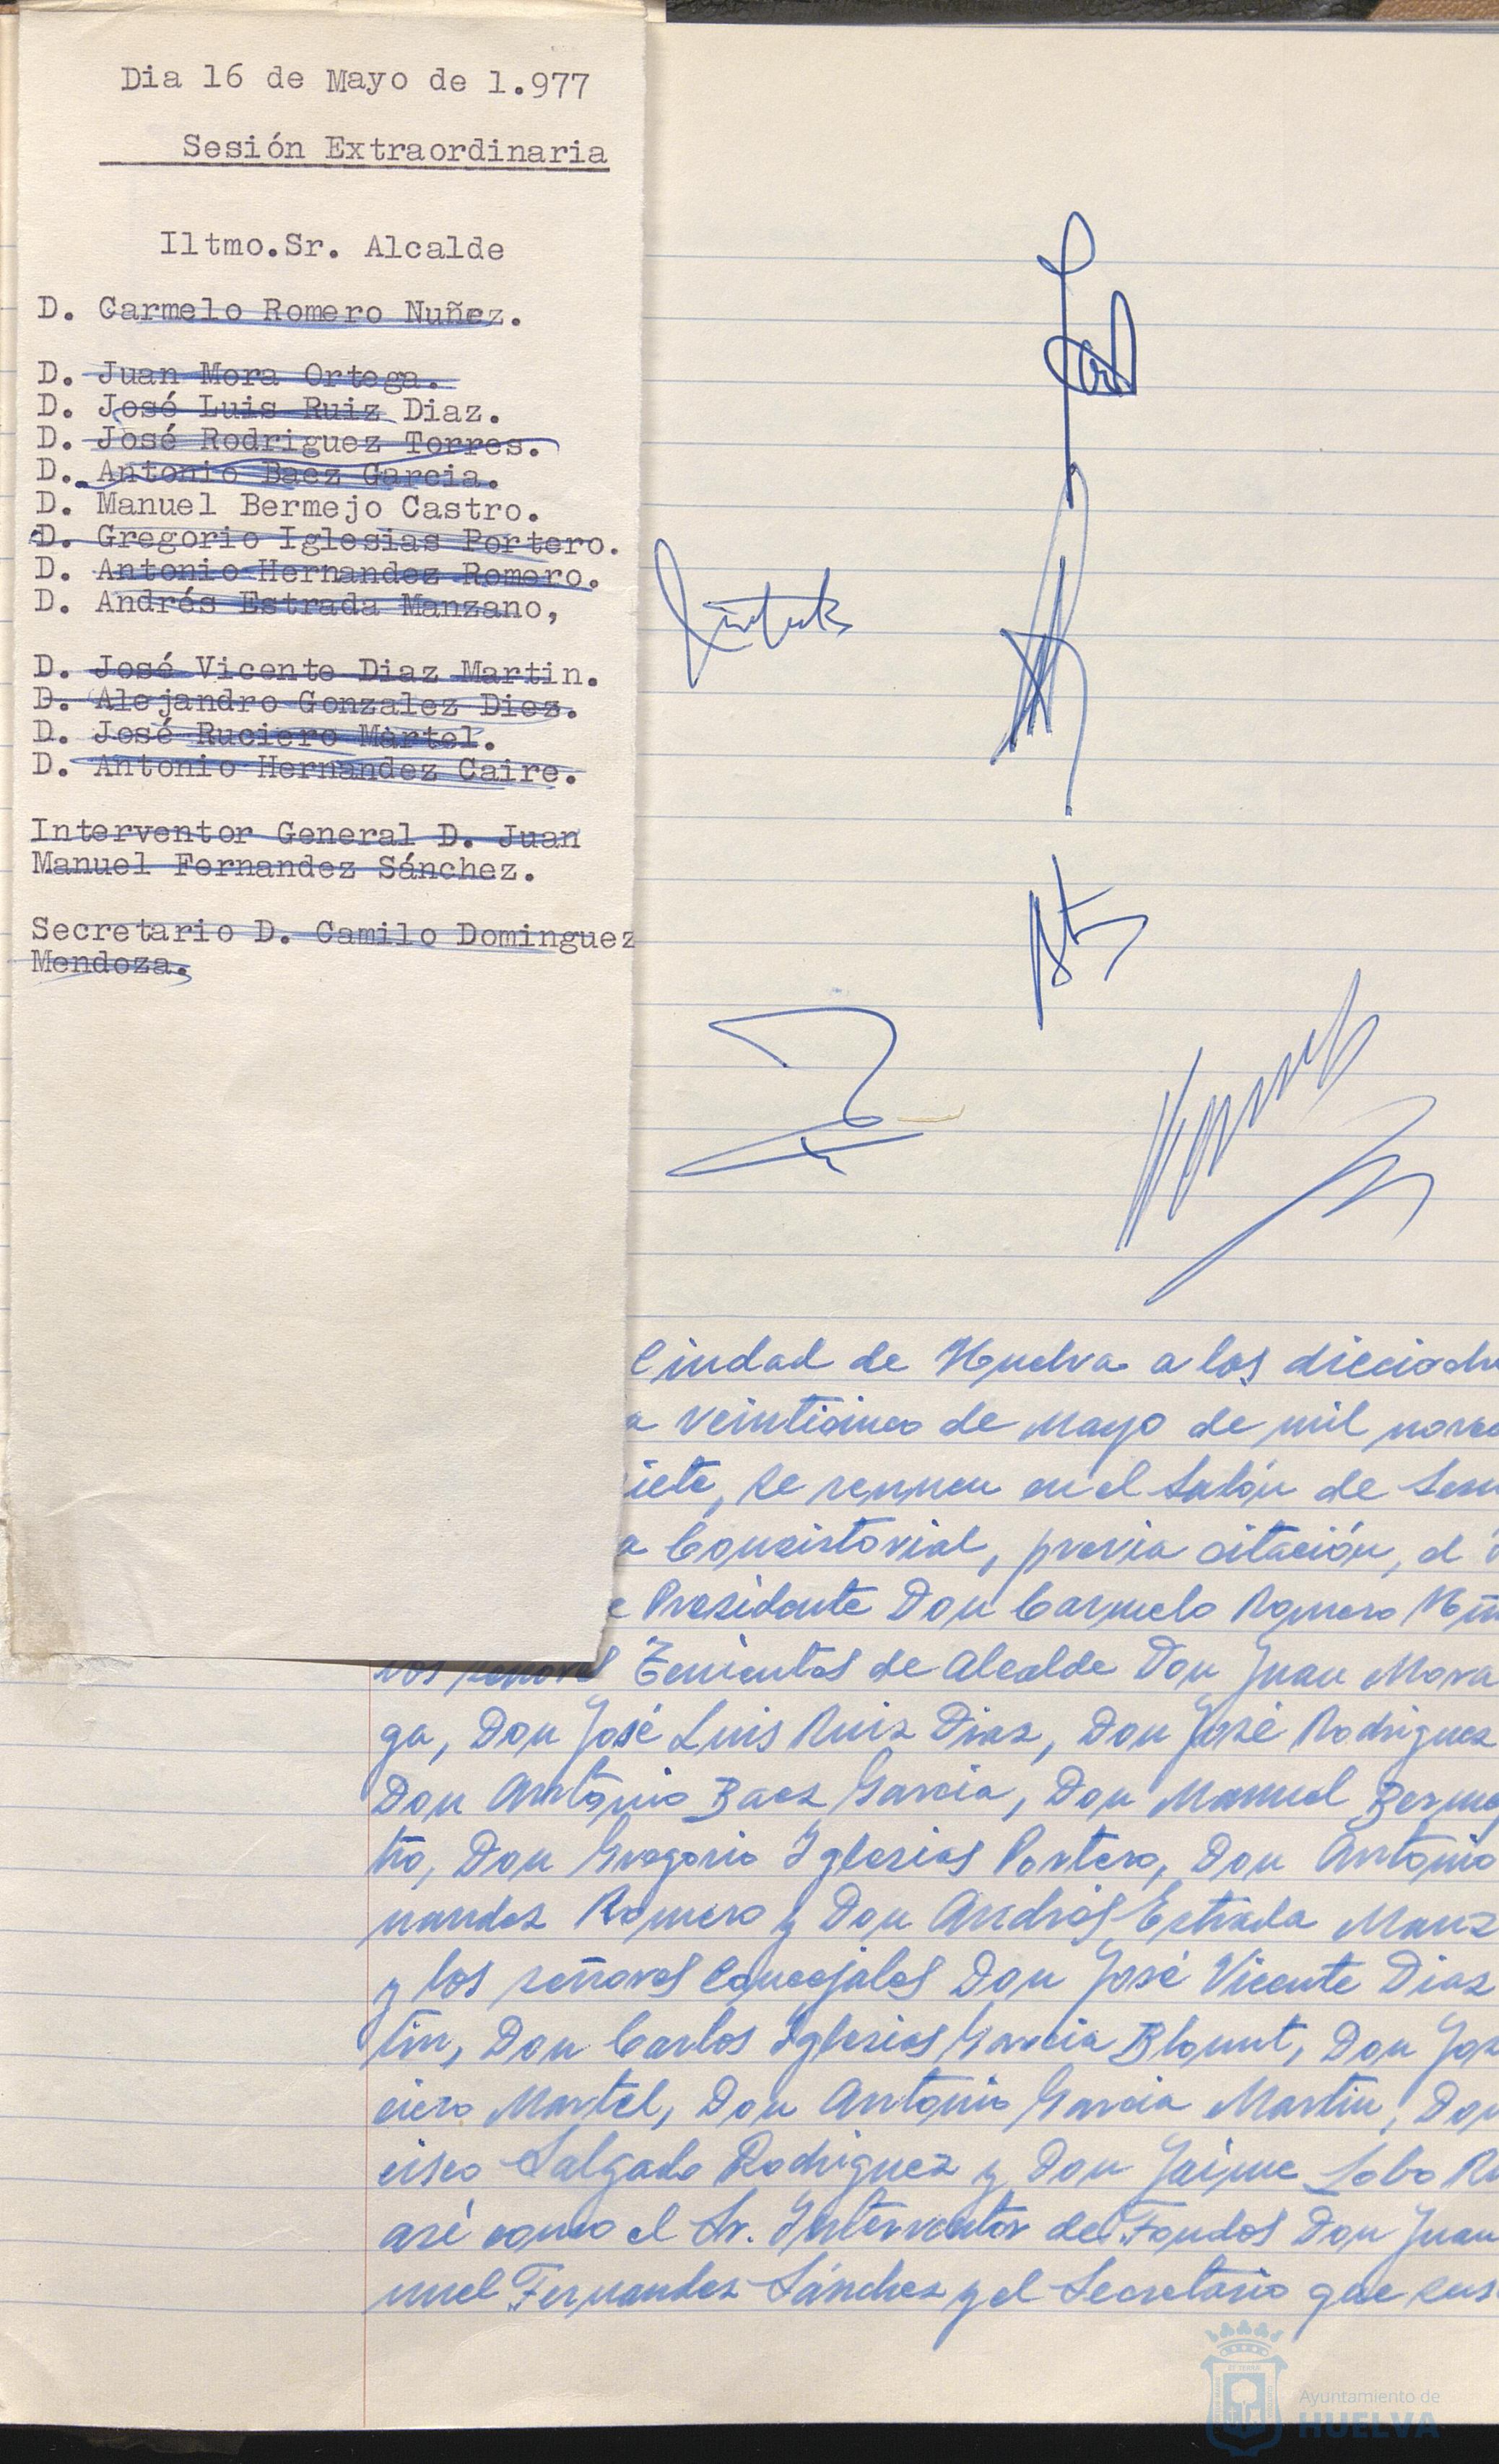 Dia 16 de Mayo de 1.977
Sesión Extraordinaria
Iltmo.Sr. Alcalde
D. Carmelo Romero Nuñez.
D. Juan Mora Ortega.
D. José Luis Ruiz Diaz.
D. José Rodriguez Torres.
D. Antonio Baez Garcia.
D. Manuel Bermejo Castro.
D. Gregorio Iglesias Portero.
D. Antonio Hernandez Romero.
D. Andrés Estrada Manzano,
D. José Vicente Diaz Martin.
D. Alejandro Gonzalez Diez.
D. José Ruciero Martel.
D. Antonio Hernandez Caire.
Interventor General D. Juan
Manuel Fernandez Sánchez.
Secretario D. Camilo Dominguez
Mendoza.
Ciudad de Huelva a las dieciocho
a veinticinco de Mayo de mil nove
iete, se reunen en el Salón de Sesi
a Consistorial, previa citación, el
e Presidente Don Carmelo Romero Nuñ
los señores Tenientes de Alcalde Don Juan Mora
ga, Don José Luis Ruiz Diaz, Don José Rodriguez
Don Antonio Baez Garcia, Don Manuel Berme
tro, Don Gregorio Iglesias Portero, Don Antonio
nandez Romero y Don Andrés Estrada Manz
y los señores Concejales Don José Vicente Diaz
tin, Don Carlos Iglesias Garcia Blount, Don Jos
ciero Martel, Don Antonio Garcia Martin, Don
cisco Salgado Rodriguez y Don Jaime Lobo Ru
así como el Sr. Interventor de Fondos Don Juan
nuel Fernandez Sánchez y el Secretario que sus
Ayuntamiento de
HUELVA